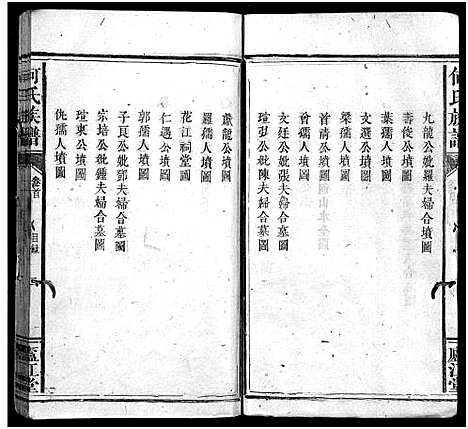 何氏族譜
廬江堂
九龍公妣羅夫婦合墳圖
壽俊公墳圖
葉孺人墳圖
文選公墳圖
梁孺人墳圖
首清公墳圖
文廷公妣張夫婦合墓圖
瑄弘公妣陳夫婦合墓圖
黻龍公墳圖
羅孺人墳圖
花江祠堂圖
仁遇公墳圖
郭孺人墳圖
子良公妣鄧夫婦合墓圖
宗培公妣鍾夫婦合墓圖
瑄東公墳圖
仇孺人墳圖
何氏族譜
卷首
目錄
廬江堂